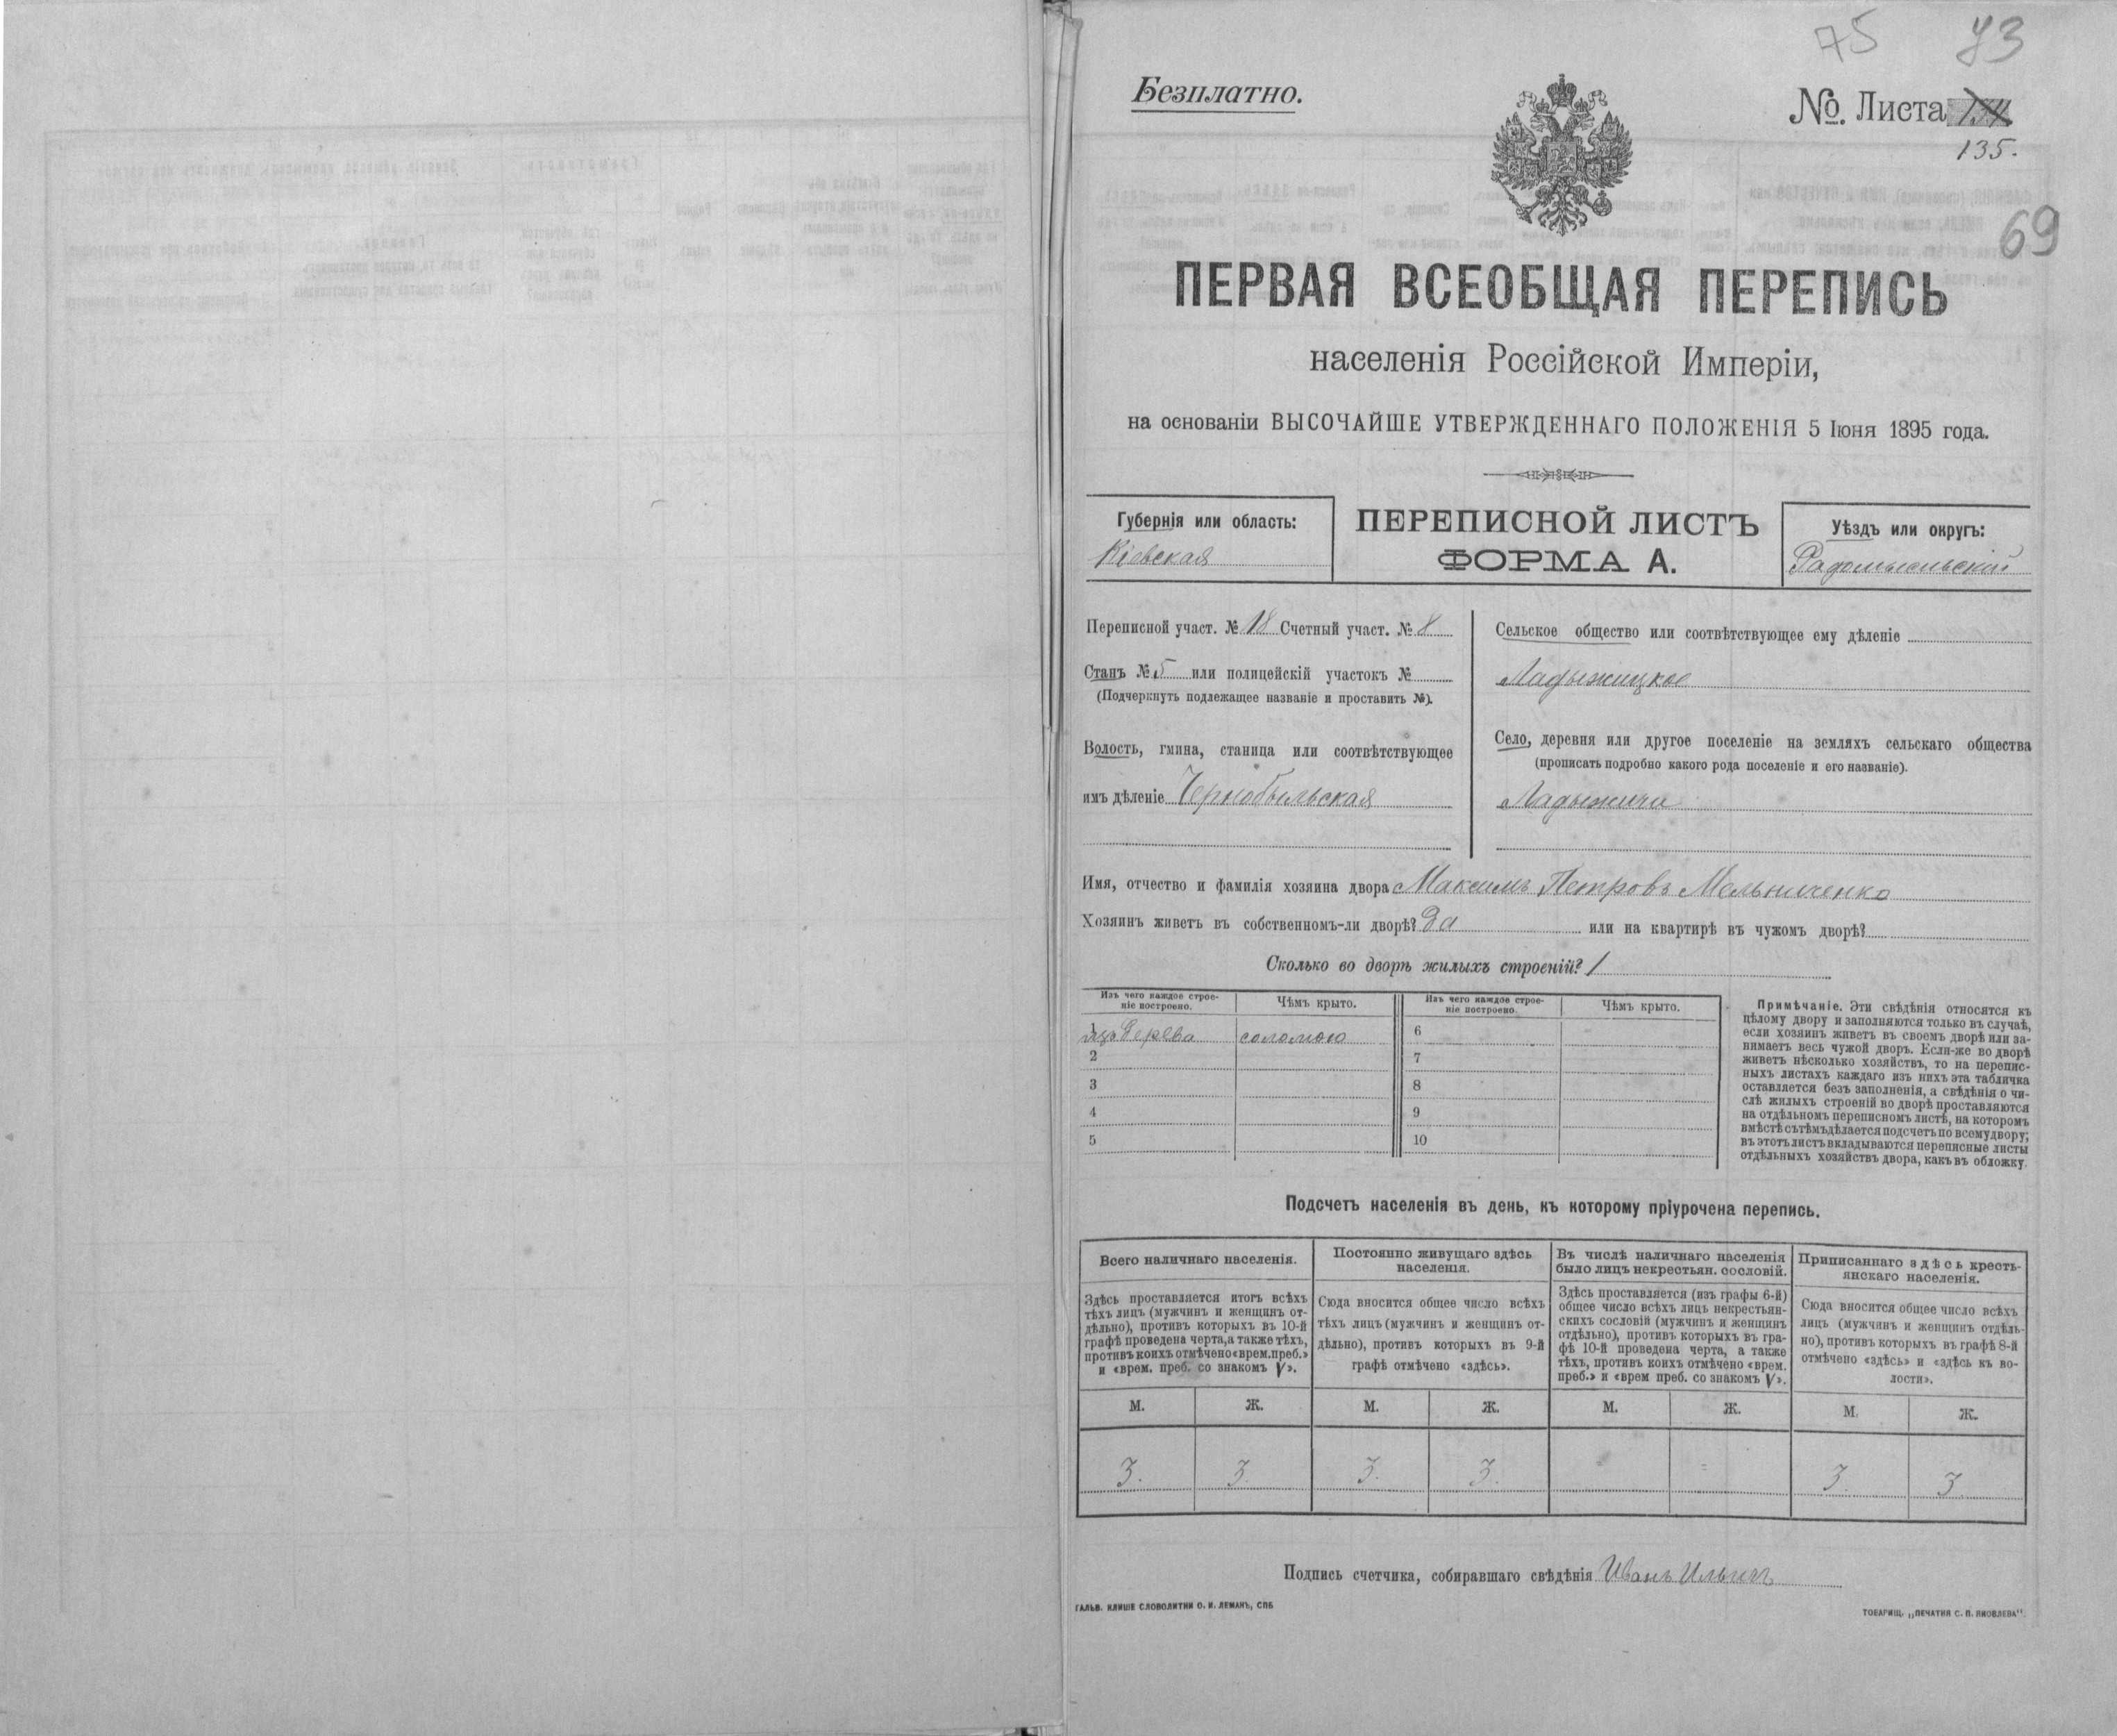 75 73
Безплатно.
№ Листа
135.
69
ПЕРВАЯ ВСЕОБЩАЯ ПЕРЕПИСЬ
населенія Россійской Имперіи,
на основаніи ВЫСОЧАЙШЕ УТВЕРЖДЕННАГО ПОЛОЖЕНІЯ 5 Іюня 1895 года.
Губернія или область:
Кіевская
ПЕРЕПИСНОЙ ЛИСТЪ
ФОРМА А.
Уѣздъ или округъ:
Радомысльскій
Переписной участ. № 18 Счетный участ. № 8
Станъ № 5 или полицейскій участокъ №
(Подчеркнуть подлежащее названіе и проставить №).
Волость, гмина, станица или соотвѣтствующее
имъ дѣленіе Чернобыльская
Сельское общество или соотвѣтствующее ему дѣленіе
Ладыжицкое
Село, деревня или другое поселеніе на земляхъ сельскаго общества
(прописать подробно какого рода поселеніе и его названіе).
Ладыжичи
Имя, отчество и фамилія хозяина двора Максимъ Петровъ Мельниченко
Хозяинъ живетъ въ собственномъ-ли дворѣ? да или на квартирѣ въ чужомъ дворѣ?
Сколько во дворѣ жилыхъ строеній? 1
Изъ чего каждое строе-
ніе построено.
Чѣмъ крыто.
Изъ чего каждое строе-
ніе построено.
Чѣмъ крыто.
1 изъ дерева соломою 6
2 7
3 8
4 9
5 10
Примѣчаніе. Эти свѣдѣнія относятся къ
цѣлому двору и заполняются только въ случаѣ,
если хозяинъ живетъ въ своемъ дворѣ или за-
нимаетъ весь чужой дворъ. Если-же во дворѣ
живетъ нѣсколько хозяйствъ, то на перепис-
ныхъ листахъ каждаго изъ нихъ эта табличка
оставляется безъ заполненія, а свѣдѣнія о чи-
слѣ жилыхъ строеній во дворѣ проставляются
на отдѣльномъ переписномъ листѣ, на которомъ
вмѣстѣ съ тѣмъ дѣлается подсчетъ по всему двору;
въ этотъ листъ вкладываются переписные листы
отдѣльныхъ хозяйствъ двора, какъ въ обложку.
Подсчетъ населенія въ день, къ которому пріурочена перепись.
Всего наличнаго населенія.
Здѣсь проставляется итогъ всѣхъ
тѣхъ лицъ (мужчинъ и женщинъ от-
дѣльно), противъ которыхъ въ 10-й
графѣ проведена черта, а также тѣхъ,
противъ коихъ отмѣчено «врем. преб.»
и «врем. преб. со знакомъ V».
Постоянно живущаго здѣсь
населенія.
Сюда вносится общее число всѣхъ
тѣхъ лицъ (мужчинъ и женщинъ от-
дѣльно), противъ которыхъ въ 9-й
графѣ отмѣчено «здѣсь».
Въ числѣ наличнаго населенія
было лицъ некрестьян. сословій.
Здѣсь проставляется (изъ графы 6-й)
общее число всѣхъ лицъ некрестьян-
скихъ сословій (мужчинъ и женщинъ
отдѣльно), противъ которыхъ въ гра-
фѣ 10-й проведена черта, а также
тѣхъ, противъ коихъ отмѣчено «врем.
преб.» и «врем преб. со знакомъ V».
Приписаннаго здѣсь кресть-
янскаго населенія.
Сюда вносится общее число всѣхъ
лицъ (мужчинъ и женщинъ отдѣль-
но), противъ которыхъ въ графѣ 8-й
отмѣчено «здѣсь» и «здѣсь къ во-
лости».
М. Ж. М. Ж. М. Ж. М. Ж.
3. 3. 3. 3. 3. 3
Подпись счетчика, собиравшаго свѣдѣнія Иванъ Ильинъ
ГАЛЬВ. КЛИШЕ СЛОВОЛИТНИ О. И. ЛЕМАНЪ, СПБ
ТОВАРИЩ. „ПЕЧАТНЯ С. П. ЯКОВЛЕВА".